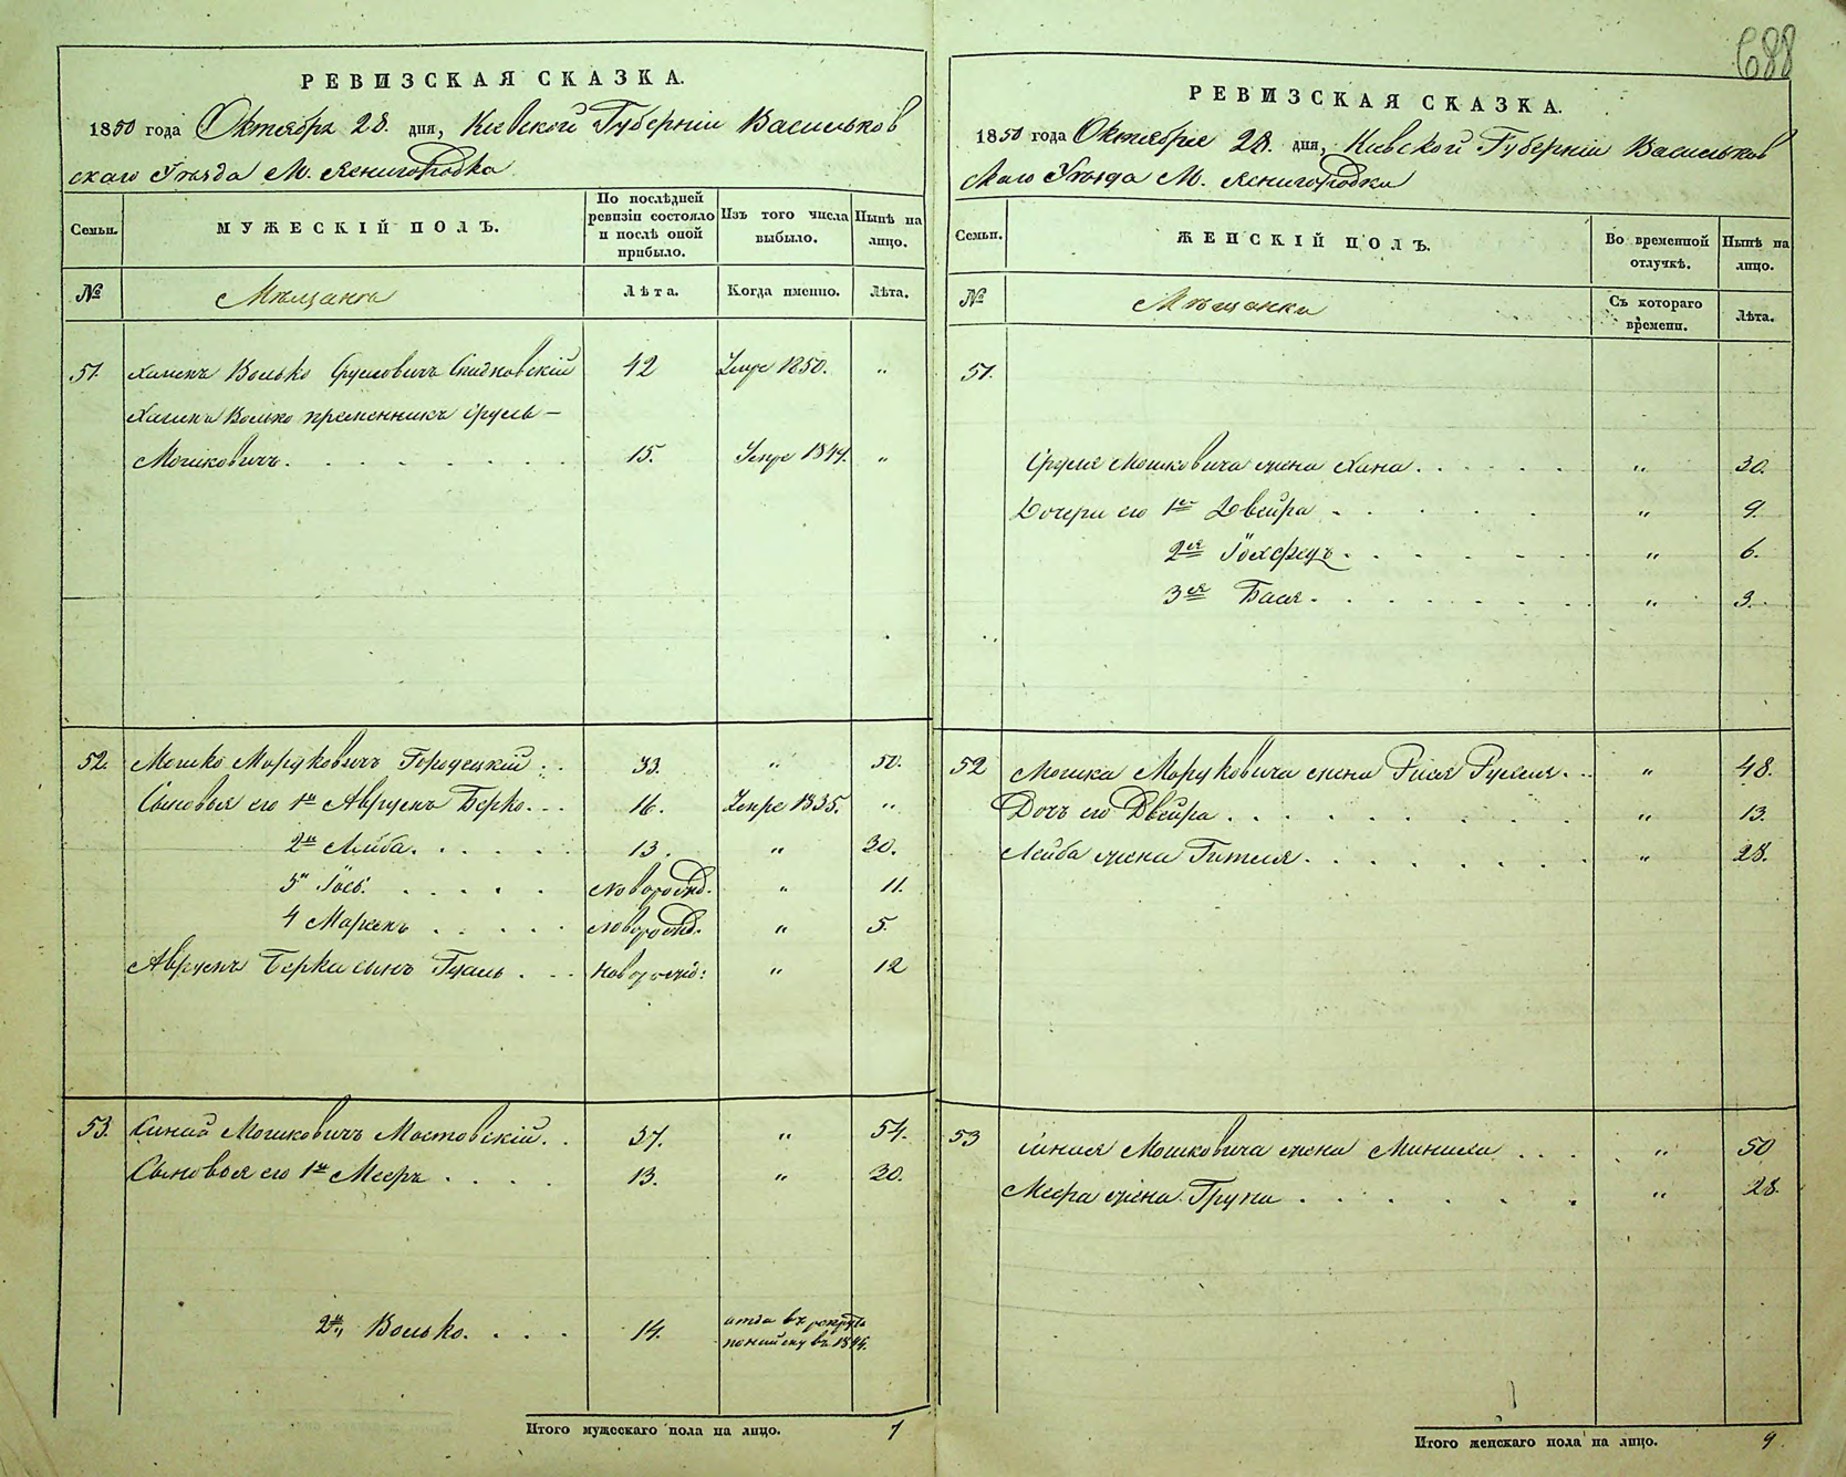 688
РЕВИЗСКАЯ СКАЗКА.
1850 года Октября 28. дня, Кіевской Губерніи Васильков
скаго Уѣзда М.
Семьи.
МУЖЕСКІЙ ПОЛЪ.
По послѣдней
ревизіи состояло
и послѣ оной
прибыло.
Изъ того числа
выбыло.
Нынѣ на
лицо.
№
Мѣщане
Лѣта.
Когда именно.
Лѣта.
51. Волько Сруловичъ 42 1850. "
Волько племенникъ Сруль –
Мошковичъ. 15. "
52. Мошко Мордковичъ Городецкій 33. " 50.
Сыновья его 1й Аврумъ Берко. 16. 1835. "
2й Лейба. 13. " 30.
3й Іось. новорожд. " 11.
4 новорожд. " 5.
Аврумъ Берка сынъ новорожд: " 12
53. Мошковичъ Мостовскій. 37. " 54.
Сыновья его 1й Мееръ 13. " 30.
2й, Волько. 14. въ рекруты
въ
Итого мужескаго пола на лицо. 7
РЕВИЗСКАЯ СКАЗКА.
1850 года Октября 28. дня, Кіевской Губерніи Васильков
скаго Уѣзда М.
Семьи.
ЖЕНСКІЙ ПОЛЪ.
Во временной
отлучкѣ.
Нынѣ на
лицо.
№
Мѣщанки
Съ котораго
времени.
Лѣта.
51.
Сруля Мошковича жена Хана. " 30.
Дочери его 1я Двейра " 9.
2я " 6.
3я Бася. " 3.
52 Мошка Мордковича жена " 48.
Дочь его Двейра " 13.
Лейба жена Гителя. " 28.
53 Мошковича жена " 50
Меера жена Група " 28.
Итого женскаго пола на лицо. 9.